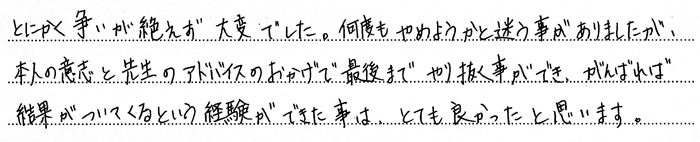 とにかく争いが絶えず大変でした。何度もやめようかと迷う事がありましたが、
本人の意志と先生のアドバイスのおかげで最後までやり抜く事ができ、がんばれば
結果がついてくるという経験ができた事は、とても良かったと思います。